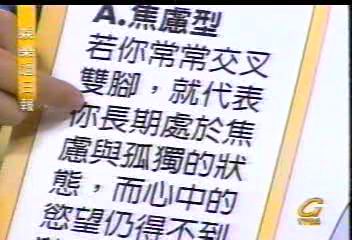 A.焦慮型
若你常常交叉
雙腳，就代表
你長期處於焦
慮與孤獨的狀
態，而心中的
慾望仍得不到